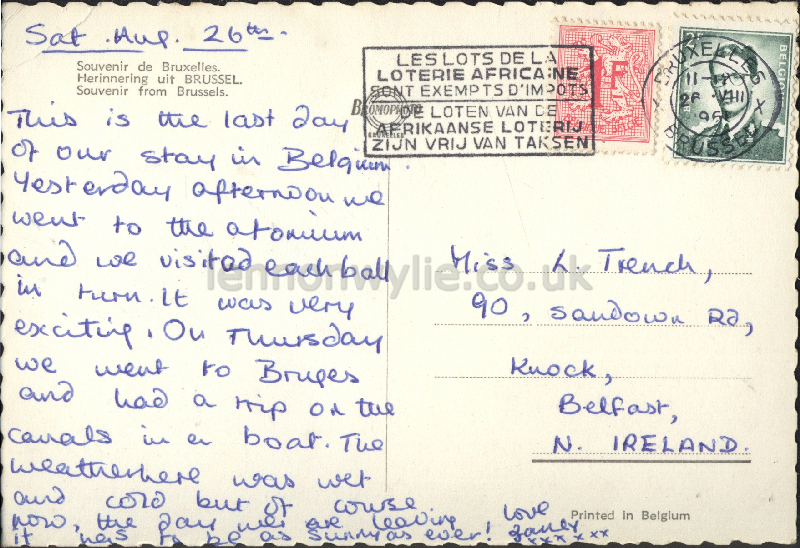 Sat. Aug. 26th.
Souvenir de Bruxelles.
Herinnering uit BRUSSEL.
Souvenir from Brussels.
This is the last day
of our stay in Belgium.
Yesterday afternoon we
went to the atomium
and we visited each ball
in turn. It was very
exciting. On Thursday
we went to Bruges
and had a trip on the
canals in a boat. The
weather here was wet
and cold but of course
now, the day we are leaving
it has to be as sunny as ever!
Love
xxxxxx
LES LOTS DE LA
LOTERIE AFRICAINE
SONT EXEMPTS D'IMPOTS
DE LOTEN VAN DE
AFRIKAANSE LOTERIJ
ZIJN VRIJ VAN TAKSEN
BRUXELLES X
VIII
BRUSSEL
BELGI
Miss L. Trench,
90, Sandown Rd,
Knock,
Belfast,
N. IRELAND.
Printed in Belgium
lennonwylie.co.uk